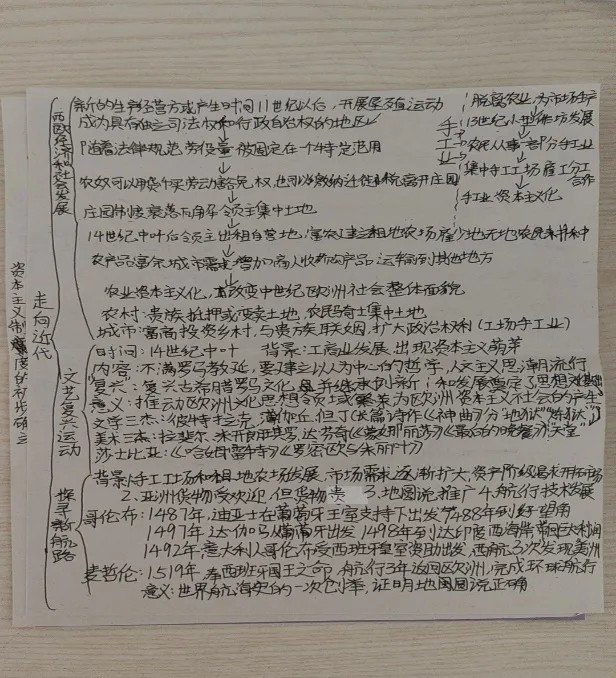 资本主义制度的初步确立
走向近代
西欧经济和社会发展
新的生产经营方式产生时间11世纪以后，开展垦殖运动
成为具有独立司法权和行政自治权的地区
随着法律规范 劳役量被固定在一个特定范围
农奴可以用货币买劳动豁免权，也可以缴纳迁徙税离开庄园
庄园制度衰落瓦解 领主集中土地
14世纪中叶后领主出租自营地，富农建立租地农场雇少地无地农民耕种
农产品富余 城市需求增加 商人收购农产品 运输到其他地方
农业资本主义化，改变中世纪欧洲社会整体面貌
农村：贵族抢押或买卖土地，农民骑士集中土地
城市：富商投资乡村，与贵族联姻，扩大政治权利（工场手工业）
手工业
脱离农业，为市场生产
13世纪小型作坊发展
农民从事一部分手工业
集中手工工场 雇工分工合作
手工业资本主义化
文艺复兴运动
时间：14世纪中叶 背景：工商业发展，出现资本主义萌芽
内容：不满罗马教廷，要建立以人为中心的哲学，人文主义思潮流行
"复兴"：复兴古希腊罗马文化，并继承创新
意义：推动欧洲文化思想领域繁荣为欧洲资本主义社会的产生和发展奠定了思想基础
文学三杰：彼特拉克，薄伽丘，但丁（长篇诗作《神曲》分"地狱""炼狱""天堂"）
美术三杰：拉斐尔，米开朗琪罗，达芬奇《蒙娜丽莎》《最后的晚餐》
莎士比亚：《哈姆雷特》《罗密欧与朱丽叶》
探寻新航路
背景：1.手工工场和租地农场发展，市场需求逐渐扩大，资产阶级渴求开拓市场
2.亚洲货物受欢迎，但货物贵 3.地圆说推广 4.航行技术发展
哥伦布：1487年，迪亚士在葡萄牙王室支持下出发 1488年到好望角
1497年 达·伽马从葡萄牙出发 1498年到达印度西海岸 带回巨大利润
1492年意大利人哥伦布受西班牙皇室资助出发，西航3次发现美洲
麦哲伦：1519年，奉西班牙国王之命，航行3年返回欧洲，完成环球航行
意义：世界航海史的一次创举，证明地圆说正确